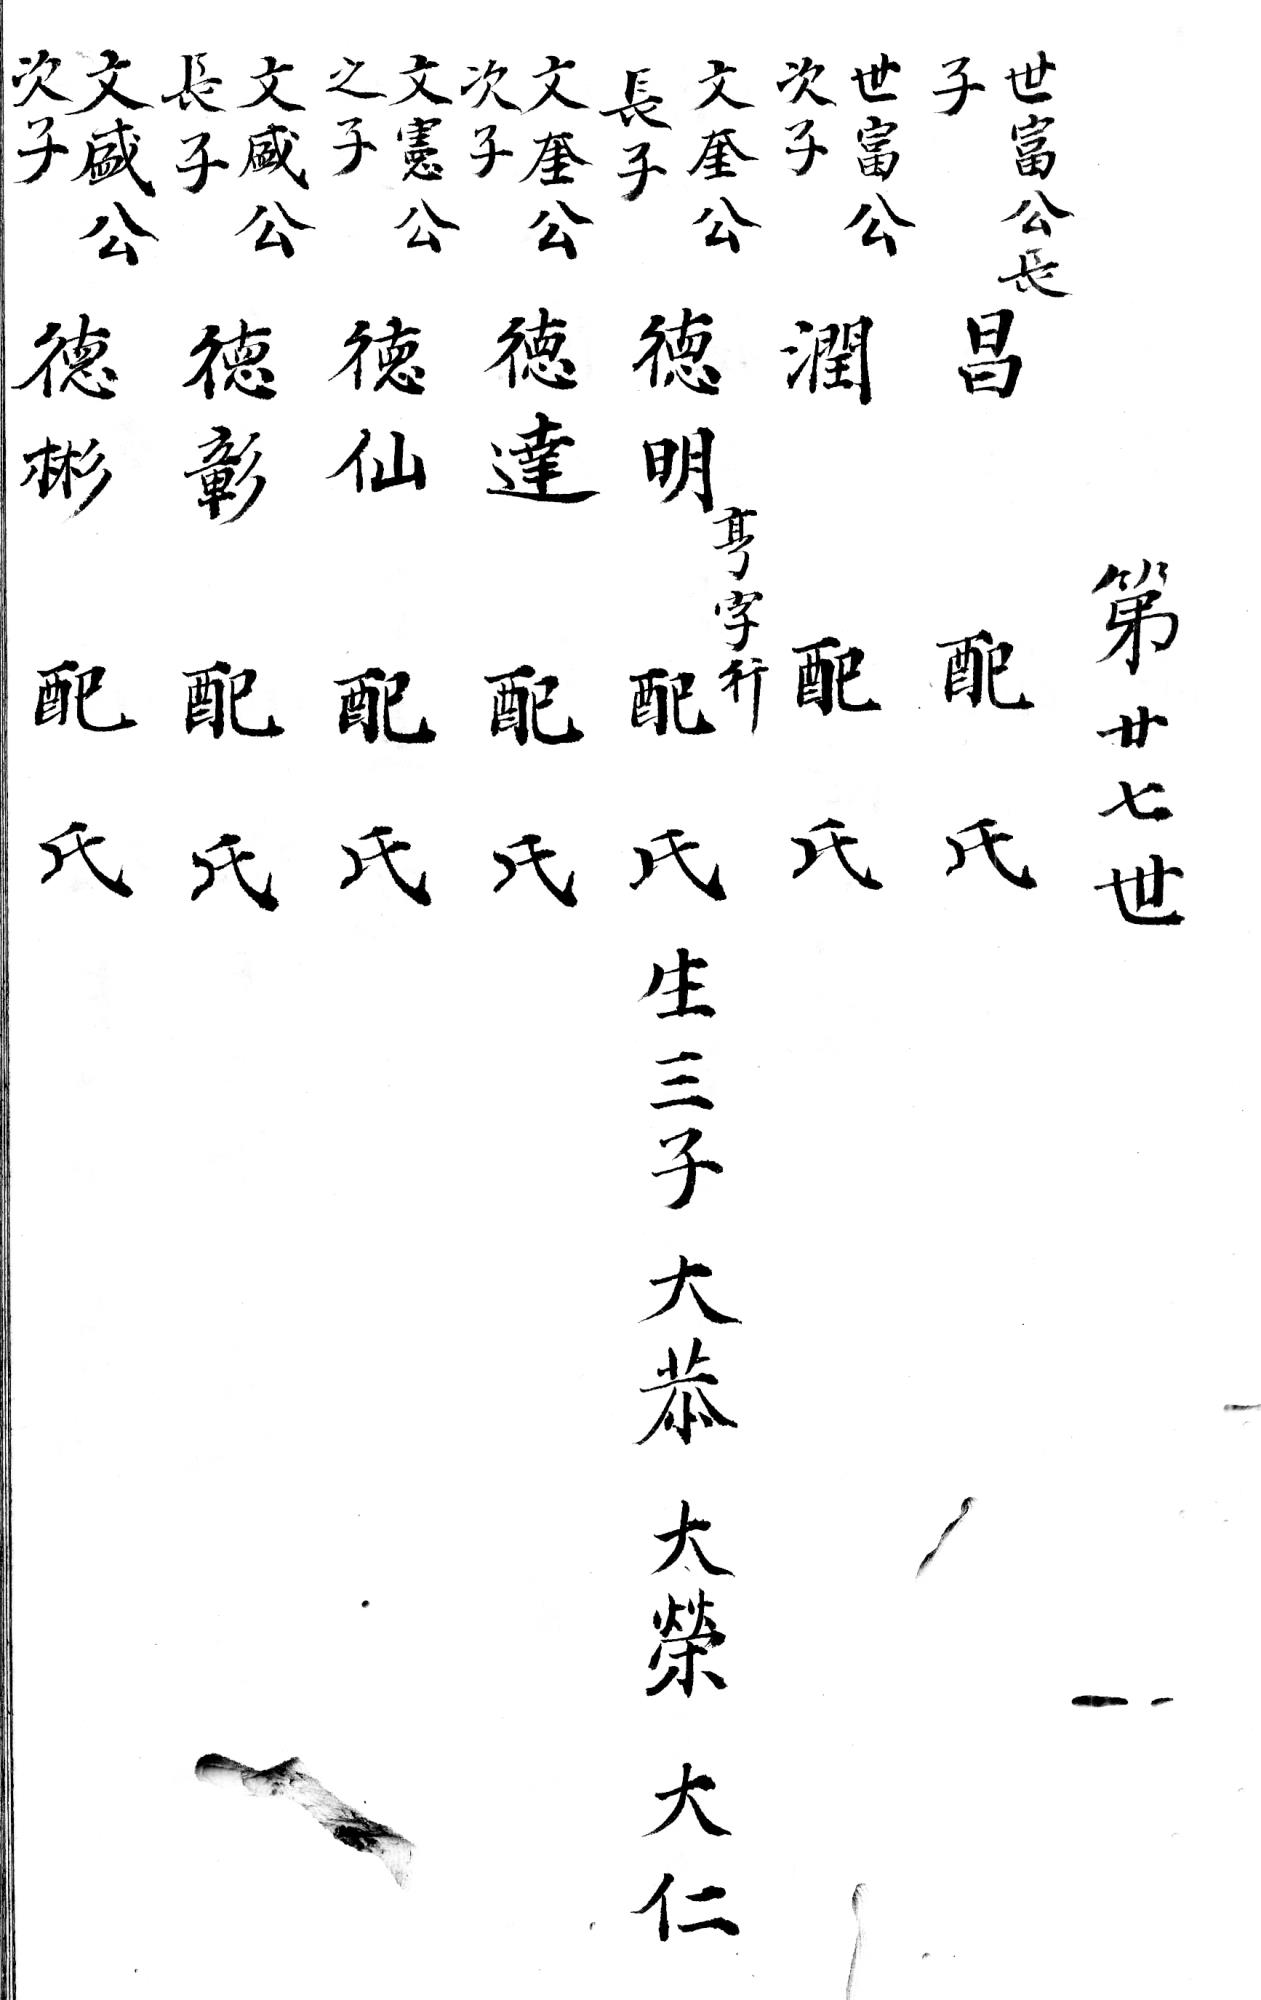 第廿七世
世富公長
子
昌 配 氏
世富公
次子
潤 配 氏
文奎公
長子
德明 亨字行 配 氏 生三子 大恭 大榮 大仁
文奎公
次子
德達 配 氏
文憲公
之子
德仙 配 氏
文盛公
長子
德彰 配 氏
文盛公
次子
德彬 配 氏